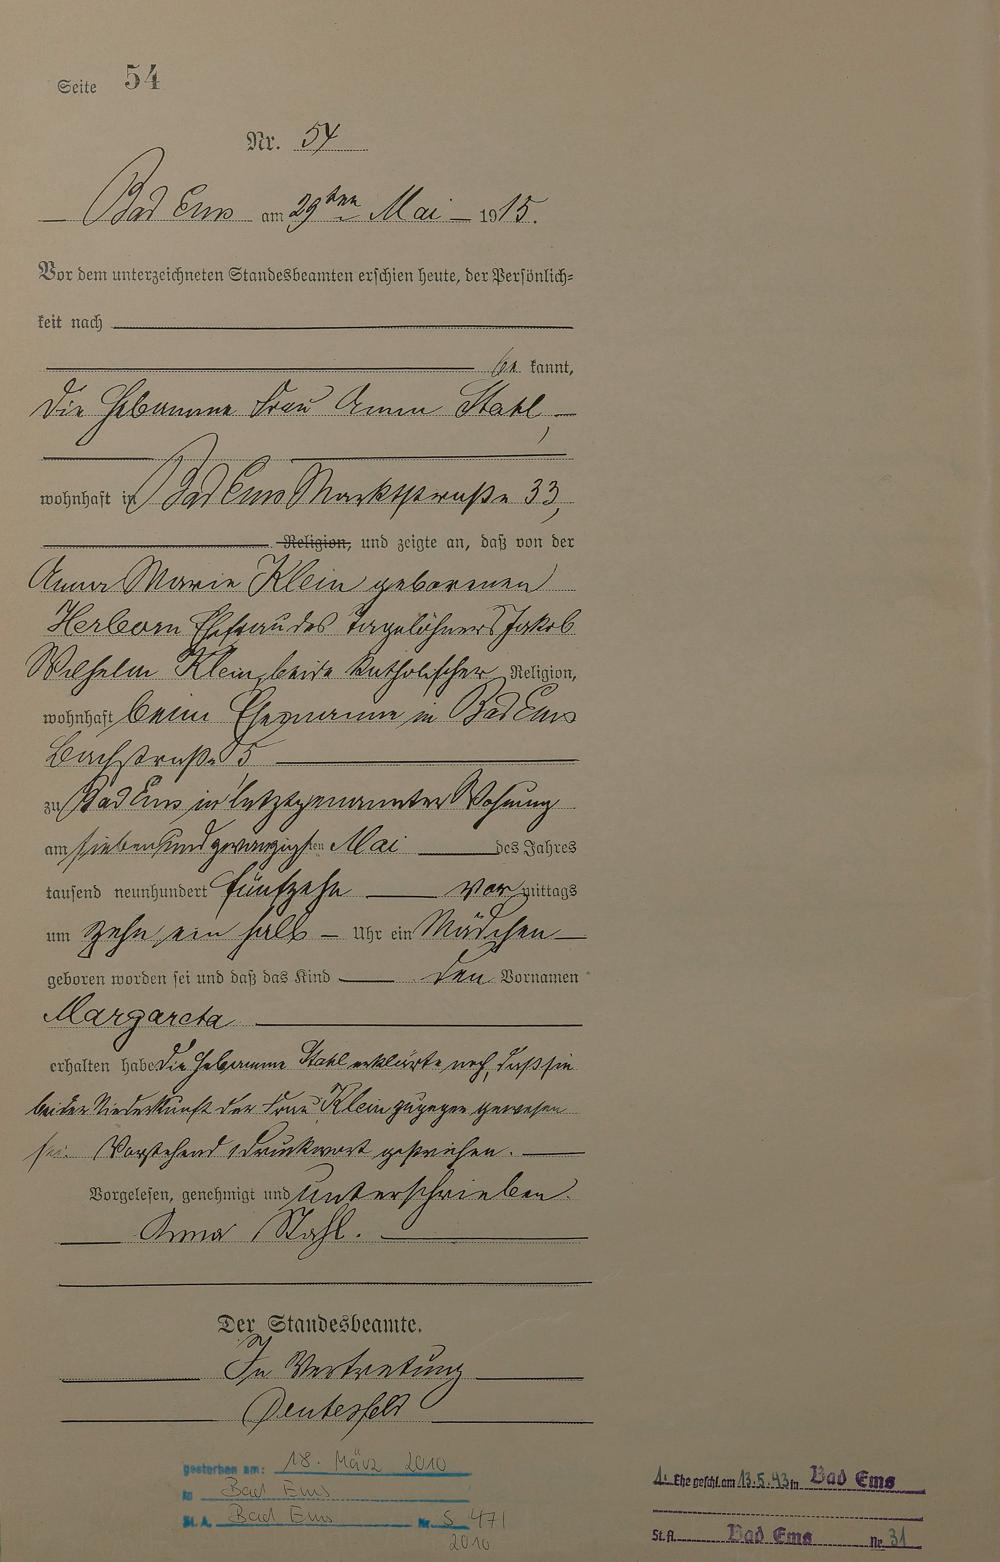 Seite 54
Nr. 54
Bad Ems am 29ten Mai 1915.
Vor dem unterzeichneten Standesbeamten erschien heute, der Persönlich=
keit nach
be kannt,
die Hebamme Frau Anna Stahl,
wohnhaft in Bad Ems Marktstraße 33,
Religion, und zeigte an, daß von der
Anna Marie Klein geborenen
Herborn Ehefrau des Tagelöhners Jakob
Wilhelm Klein, beide katholischer Religion,
wohnhaft beim Ehemanne in Bad Ems
Bachstraße 5
zu Bad Ems in letztgenannter Wohnung
am siebenundzwanzigsten Mai des Jahres
tausend neunhundert fünfzehn vor mittags
um zehn ein halb Uhr ein Mädchen
geboren worden sei und daß das Kind den Vornamen
Margareta
erhalten habe Die Hebamme Stahl erklärte noch, daß sie
bei der Niederkunft der Frau Klein zugegen gewesen
sei. Vorstehend 1 Druckwort gestrichen.
Vorgelesen, genehmigt und unterschrieben.
Anna Stahl.
Der Standesbeamte.
In Vertretung
gestorben am: 18. März 2010
in Bad Ems
St. A. Bad Ems Nr. S 471
2010
1. Ehe geschl. am 13.5.43 in Bad Ems
St. A. Bad Ems Nr. 31